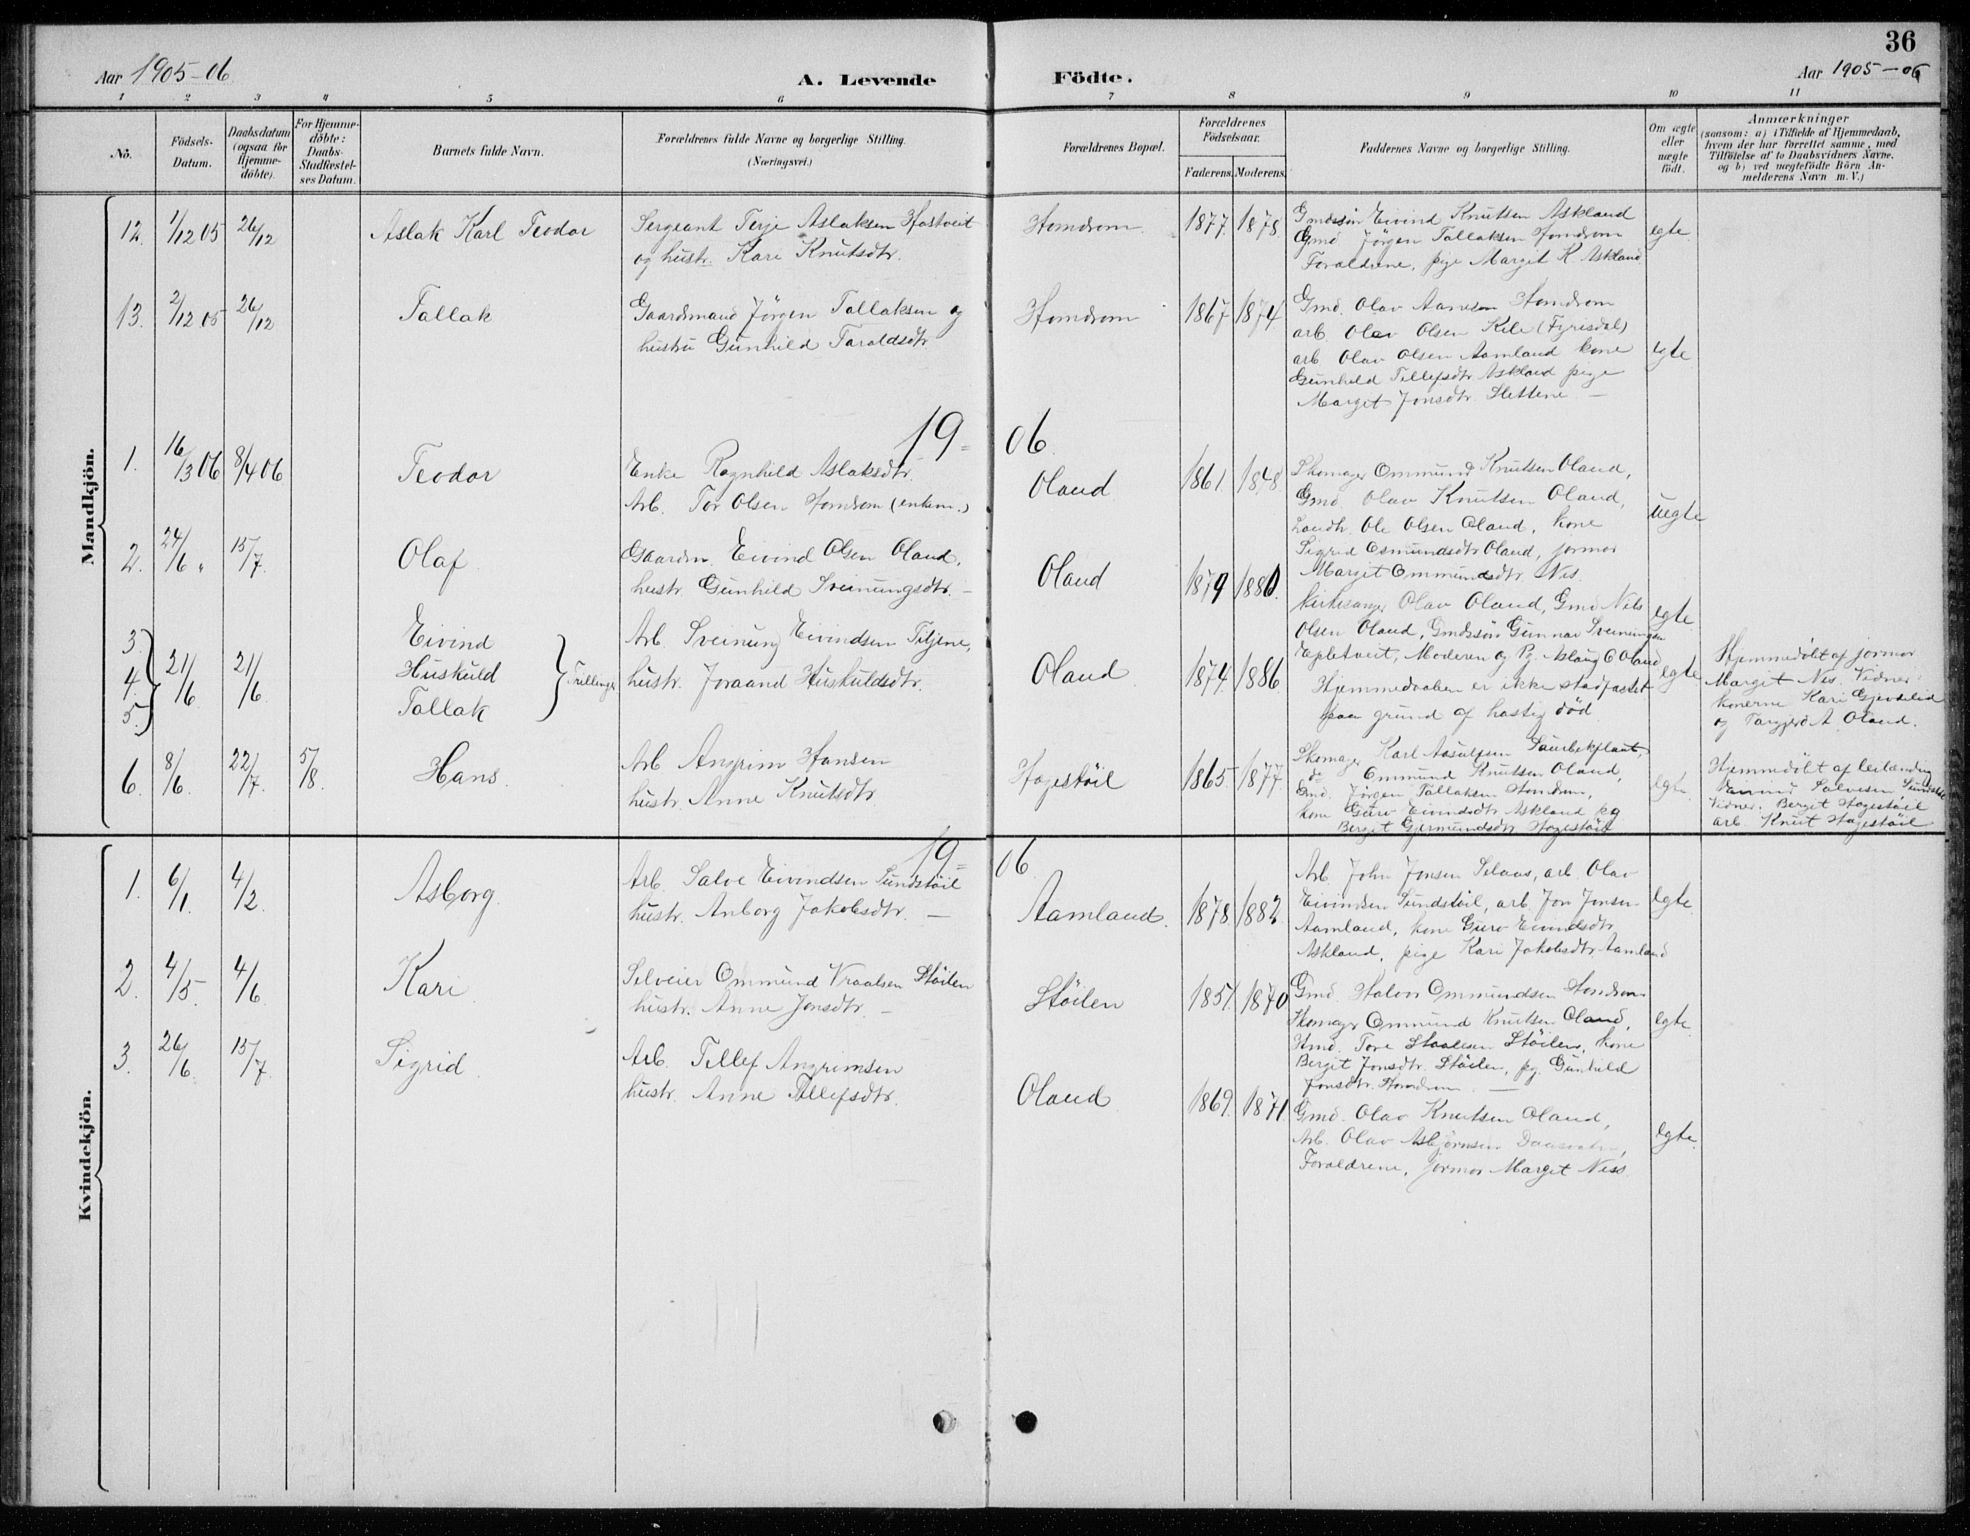 36
Aar 1905-06
A. Levende Födte.
Aar 1905-06
1 2 3 4 5 6 7 8 9 10 11
No.
Födsels-Datum.
Daabsdatum (ogsaa for Hjemme-döbte).
For Hjemme-döbte: Daabs-Stadfæstel-ses Datum.
Barnets fulde Navn.
Forældrenes fulde Navne og borgerlige Stilling.
(Næringsvei.)
Forældrenes Bopæl.
Forældrenes Födselsaar.
Faderens. Moderens.
Faddernes Navne og borgerlige Stilling.
Om ægte eller uægte født.
Anmærkninger
(saasom: a) i Tilfælde af Hjemmedaab,
hvem der har forrettet samme, med
Tilföielse af to Daabsvidners Navne,
og b) ved uægtefödte Börn An-
melderens Navn m. V.)
Mandkjön.
12. 1/12 05 26/12 Aslak Karl Teodor
Sergeant Terje Aslaksen Hastveit
og hustr. Kari Knutsdtr.
Homdrom 1877. 1878
Gmdssön Eivind Knutsen Askland
Gmd Jörgen Tallaksen Homdrom
Forældrene, pige Marget K. Askland
egte.
13. 2/12 05 26/12 Tallak
Gaardmand Jörgen Tallaksen og
hustru Gunhild Taraldsdtr.
Homdrom 1867 1874
Gmd. Olav Aanesen Homdrom
arb. Olav Olsen Kile (Fyrisdal)
arb. Olav Olsen Aamland kone
Gunhild Tellefsdtr. Askland pige
Marget Jonsdtr. Slettene
egte
19=06.
1. 16/3 06 8/4 06 Teodor
Enke Ragnhild Aslaksdtr.
Arb. Tor Olsen Homdrom (enkem.)
Oland 1861. 1878
Skomager Ommund Knutsen Oland,
Gmd. Olav Knutsen Oland,
Landh. Ole Olsen Oland, kone
Sigrid Osmundsdtr. Oland, jormor
Marget Ommundsdtr. Nes.
uegte
2. 24/6 " 15/7. Olaf.
Gaardm. Eivind Olsen Oland,
hustr. Gunhild Sveinungsdtr.
Oland 1879 1880.
Kirkesanger Olav Oland, Gmd Nils
Olsen Oland, Gmdssön Gunnar Sveinungsen
Epletveit, Moderen og Pg. Aslaug E Oland
egte
3. Eivind
4. 21/6 21/6 Huskuld Trillinger
5. Tallak
Arb. Sveinung Eivindsen Tiljene,
hustr. Joraand Huskuldsdtr.
Oland 1874. 1886
Hjemmedaaben er ikke stadfæstet
paa grund af hastig död
egte
Hjemmedöbt af jormor
Marget Nes. Vidner:
konerne Kari Gjevdelid
og Targjerd A. Oland.
6. 8/6. 22/7. 5/8. Hans.
Arb Angrim Hansen
hustr. Anne Knutsdtr.
Hagestöil 1865 1877
Skomager Karl Aasulfsen
do Ommund Knutsen Oland,
Gmd. Jörgen Tallaksen Homdrom,
kone Guro Eivindsdtr Askland pg
Berget Gjermundsdtr Hagestöil
egte.
Hjemmedöbt af
Salvesen Sundstöil
Vidner. Berget Hagestöil
arb. Knut Hagestöil
Kvindekjön.
19=06.
1. 6/1. 4/2. Asborg.
Arb. Salve Eivindsen Sundstöil
hustr. Anborg Jakobsdtr.
Aamland. 1878. 1882.
Arb. John Jonsen Selaas, arb. Olav
Eivindsen Sundstöil, arb. Jon Jonsen
Aamland, kone Guro Eivindsdtr.
Askland, pige Kari Jakobsdtr. Aamland
egte.
2. 4/5. 4/6. Kari
Selveier Ommund Vraalsen Stöilen
hustr. Anne Jonsdtr.
Stöilen 1851. 1870.
Gmd. Halvor Ommundsen Homdrom
Skomager Ommund Knutsen Oland,
Hmd. Tore Staalesen Stöilen, kone
Bergit Jonsdtr. Stöilen, pg. Gunhild
Jonsdtr. Homdrom.
egte.
3. 26/6. 15/7. Sigrid.
Arb. Tellef Angrimsen
hustr. Anne Tellefsdtr.
Oland 1869. 1871.
Gmd. Olav Knutsen Oland,
Arb. Olav Asbjörnsen
Forældrene, jormor Marget Ness
egte.